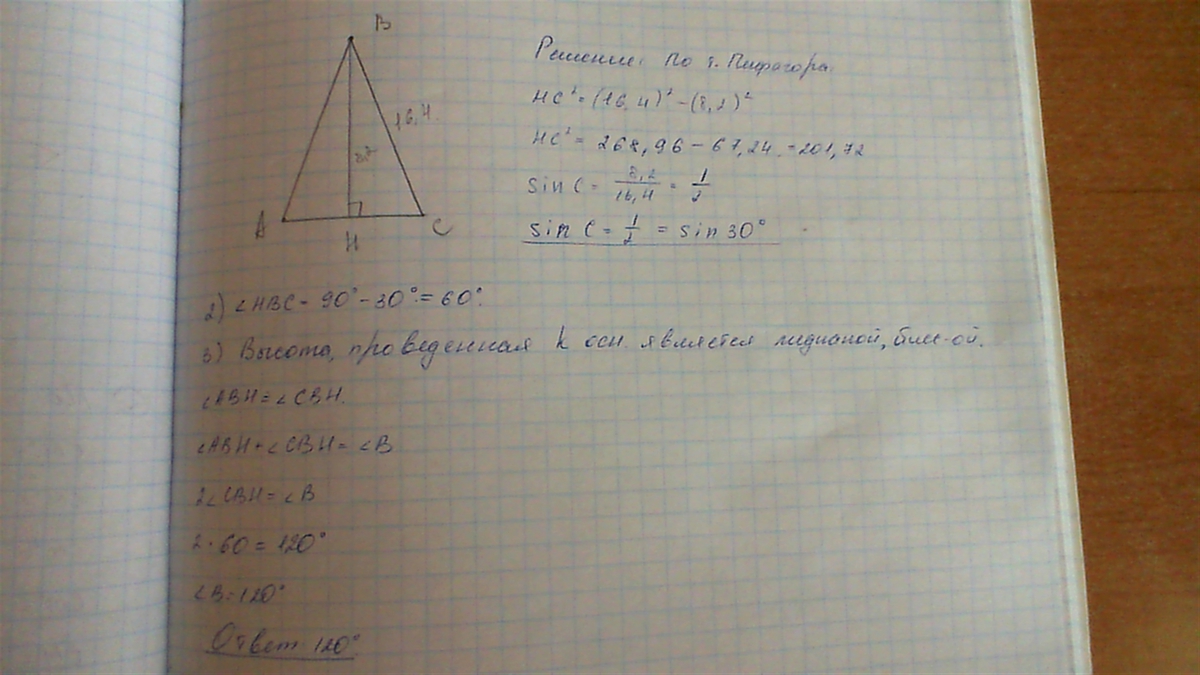 B
16,4
8,2
A
H
C
Решение: По т. Пифагора.
HC² = (16,4)² - (8,2)²
HC² = 268,96 - 67,24 = 201,72
sin C = 8,2/16,4 = 1/2
sin C = 1/2 = sin 30°
2) ∠HBC = 90° - 30° = 60°.
3) Высота, проведенная к осн. является медианой, бисс-ой.
∠ABH = ∠CBH.
∠ABH + ∠CBH = ∠B
2∠CBH = ∠B
2 · 60 = 120°
∠B = 120°
Ответ 120°.